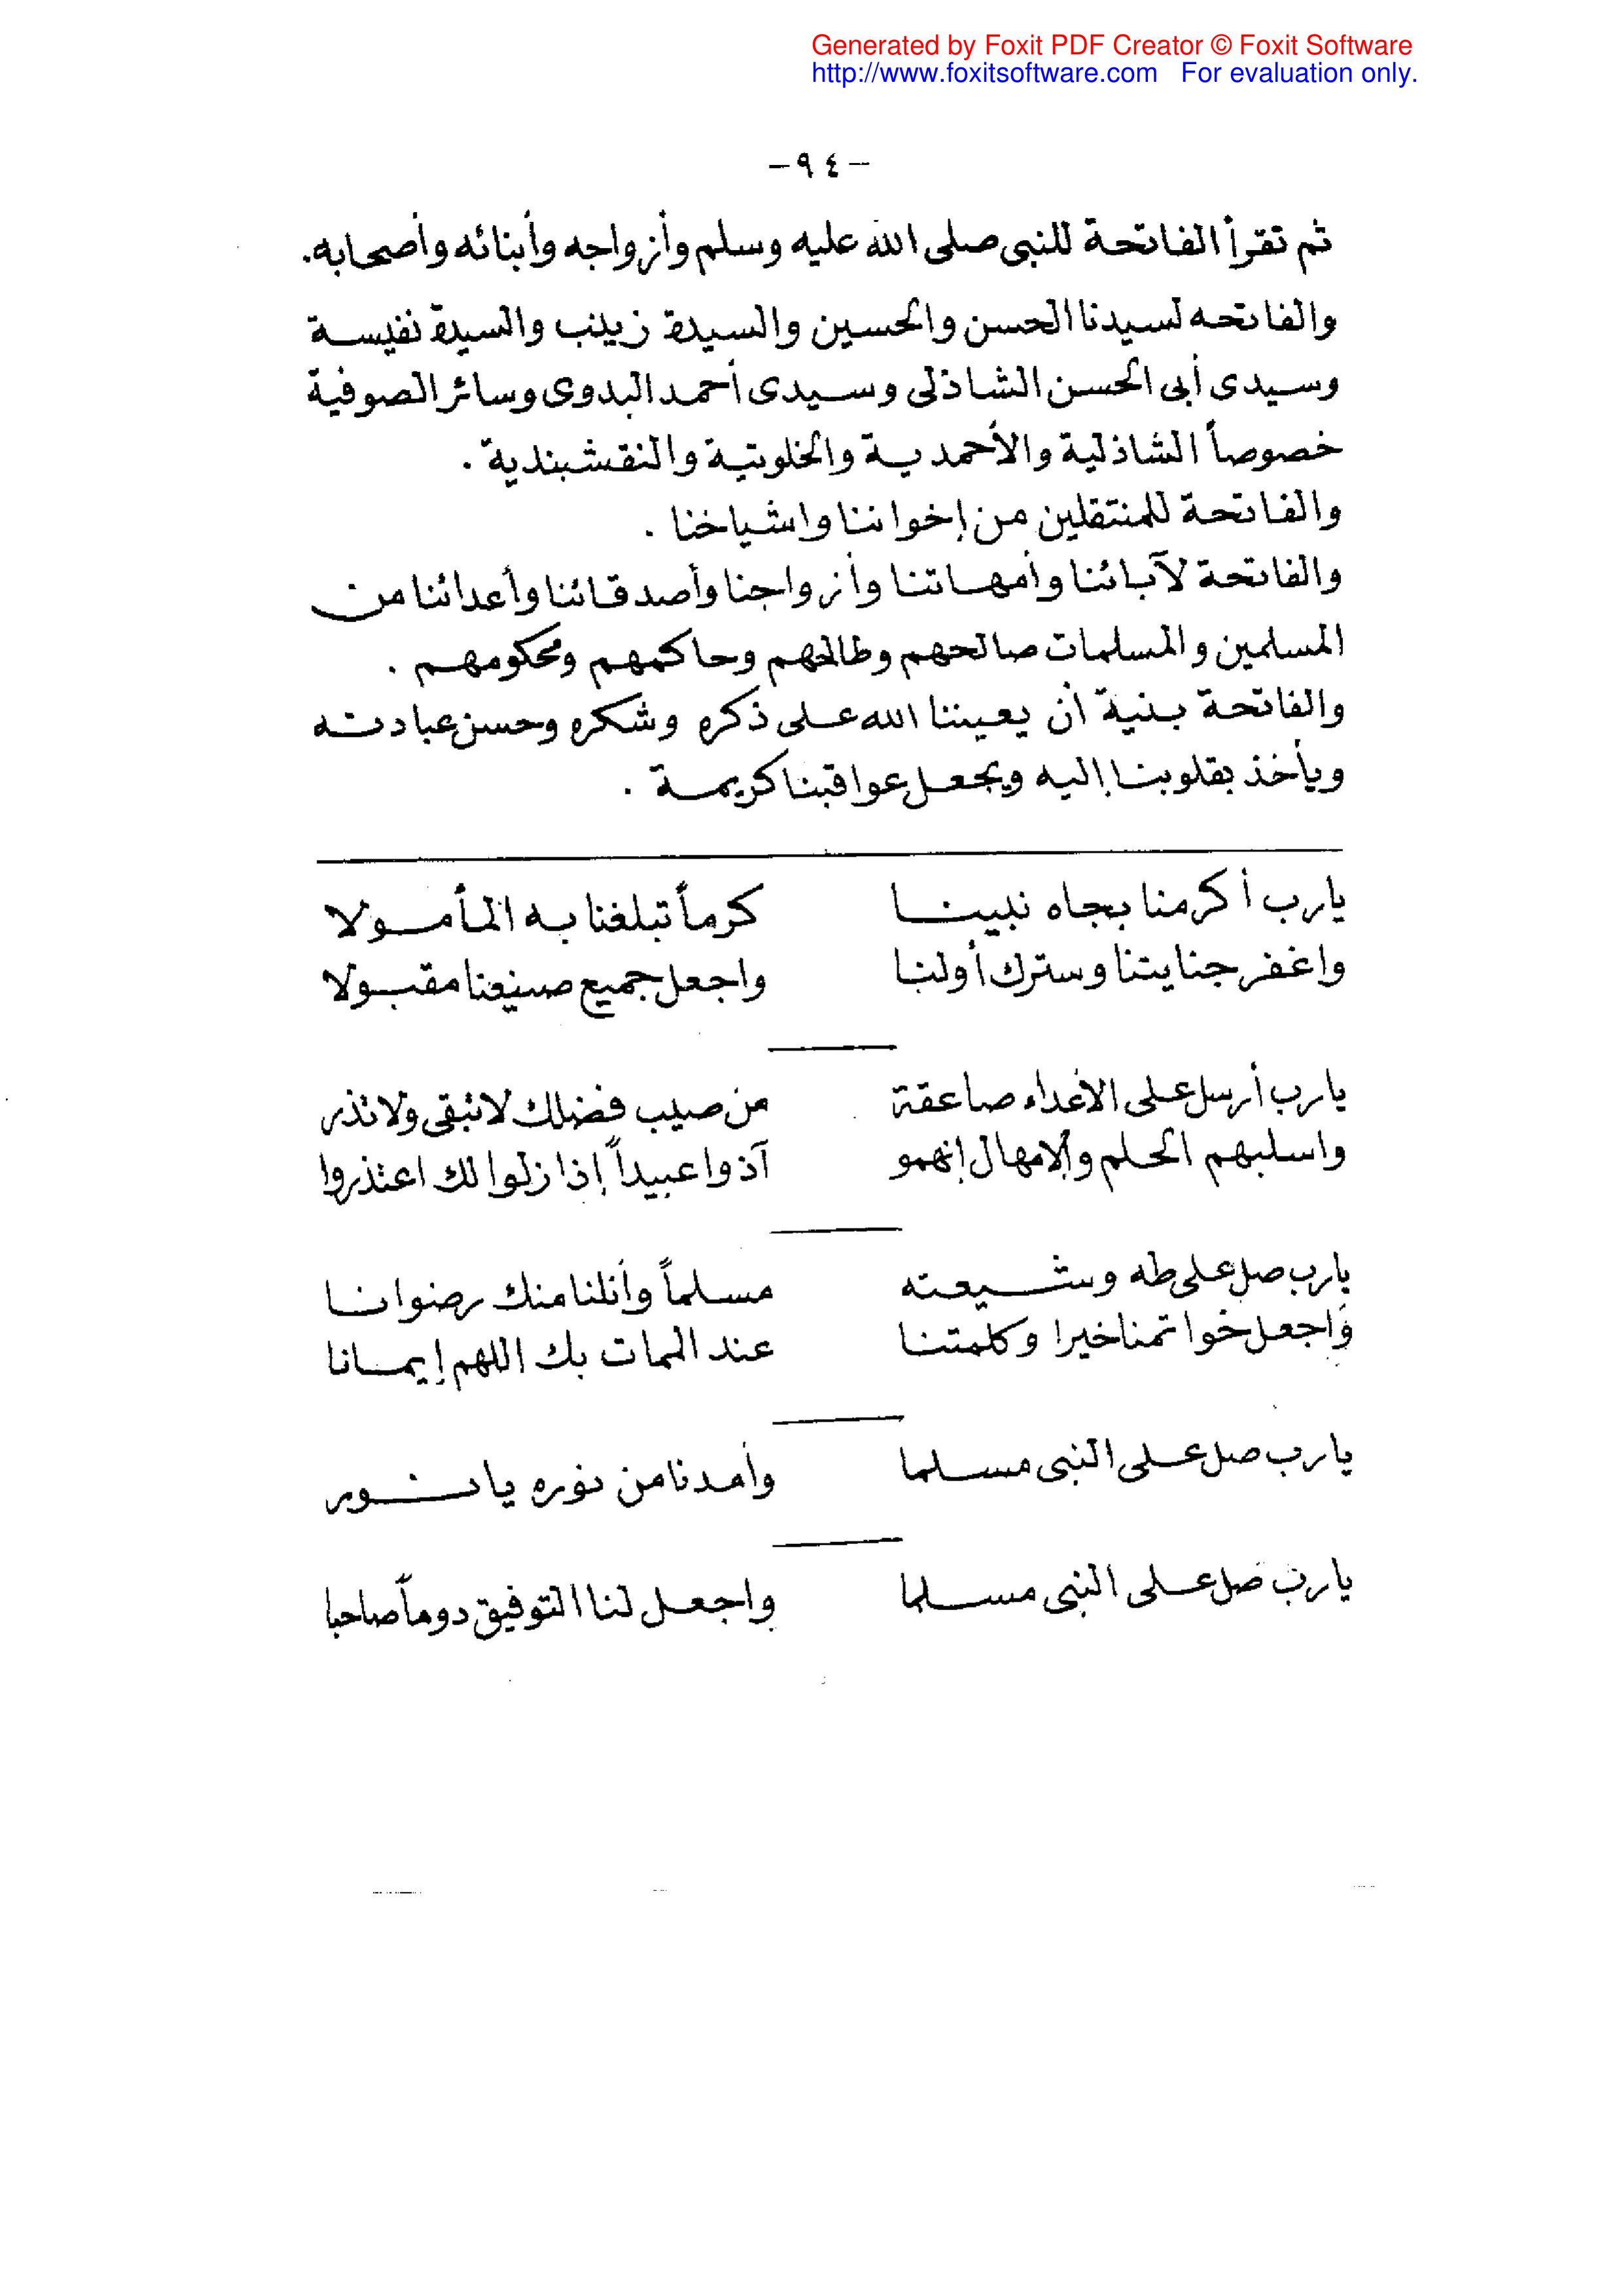 Generated by Foxit PDF Creator © Foxit Software
http://www.foxitsoftware.com For evaluation only.
-٩٤-
ثم تقرأ الفاتحة للنبى صلى الله عليه وسلم وأزواجه وأبنائه وأصحابه.
والفاتحه لسيدنا الحسن والحسين والسيدة زينب والسيدة نفيسة
وسيدى أبى الحسن الشاذلى وسيدى أحمد البدوى وسائر الصوفية
خصوصاً الشاذلية والأحمدية والخلوتية والنقشبندية .
والفاتحة للمنتقلين من إخواننا واشياخنا .
والفاتحة لآبائنا وأمهاتنا وأزواجنا وأصدقائنا وأعدائنا من
المسلمين والمسلمات صالحهم وطالحهم وحاكمهم ومحكومهم .
والفاتحة بنية أن يعيننا الله على ذكره وشكره وحسن عبادته
ويأخذ بقلوبنا إليه ويجعل عواقبنا كريمة .
يارب أكرمنا بجاه نبينا كرماً تبلغنا به المأمولا
واغفر جنايتنا وسترك أولنا واجعل جميع صنيعنا مقبولا
يارب أرسل على الأعداء صاعقة من صيب فضلك لا تبقى ولا تذر
واسلبهم الحلم والإمهال إنهمو آذوا عبيداً إذا زلوا لك اعتذروا
يارب صل على طه وشيعته مسلماً وأنلنا منك رضوانا
واجعل خواتمنا خيرا وكلمتنا عند الممات بك اللهم إيمانا
يارب صل على النبى مسلما وأمدنا من نوره يا نور
يارب صل على النبى مسلما واجعل لنا التوفيق دوماً صاحبا